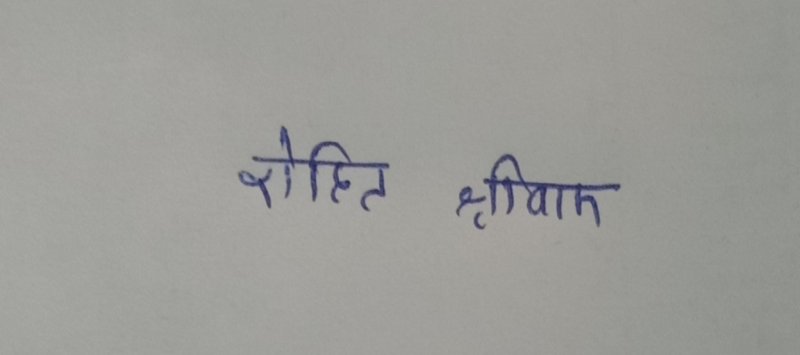 रोहित श्रीवास